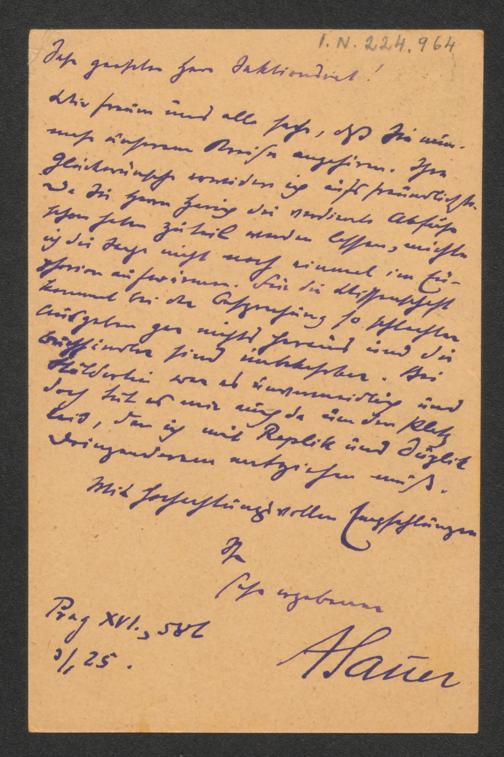 I. N. 224.964
Sehr geehrter Herr Sektionsrat!
Wir freuen uns alle sehr, daß Sie nun-
mehr unserem Kreise angehören. Ihre
Glückwünsche erwidere ich aufs freundlichste.
Da Sie Herrn Hevig die verdiente Abfuhr
schon haben zuteil werden lassen, möchte
ich die Sache nicht noch einmal im Eu-
phorion aufwärmen. Für die Wissenschaft
kommt bei der Besprechung so schlechter
Ausgaben gar nichts heraus und die
Buchhändler sind unbelehrbar. Bei
Hölderlin war es unvermeidlich und
doch tut es mir auch da um den Platz
leid, den ich mit Replik und Duplik
Dringenderem entziehen muß.
Mit hochachtungsvollen Empfehlungen
Ihr
sehr ergebener
ASauer
Prag XVI., 586
3/1 25.